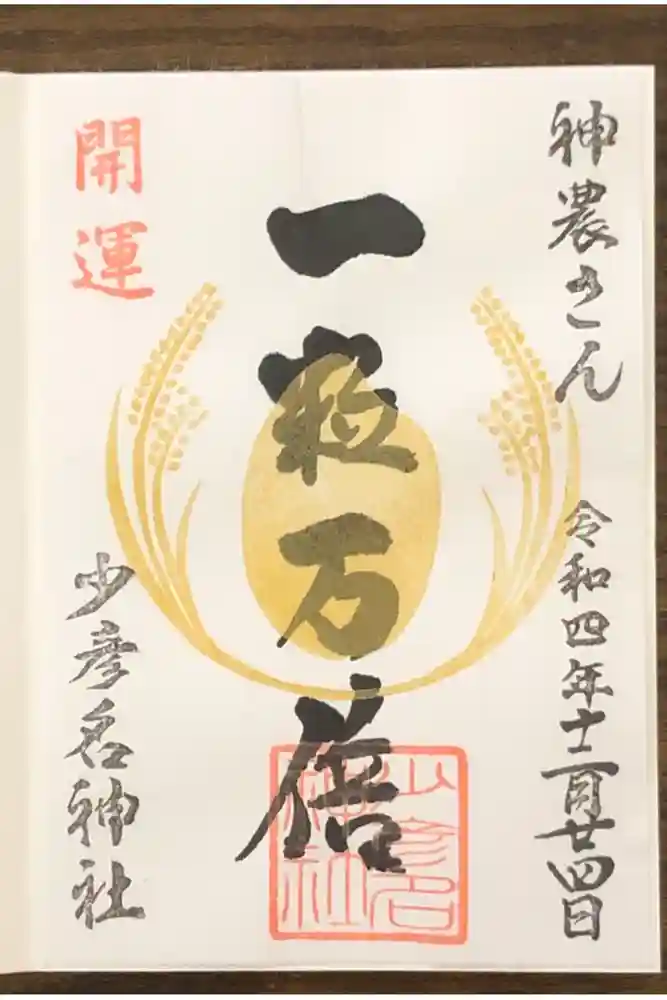 神農さん
令和四年十二月廿四日
一粒万倍
開運
少彦名神社
少彦名
神社